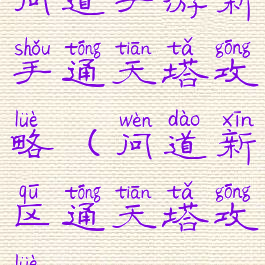 问道手游新
shǒu tōng tiān tǎ gōng
手通天塔攻
lüè wèn dào xīn
略（问道新
qū tōng tiān tǎ gōng
区通天塔攻
lüè